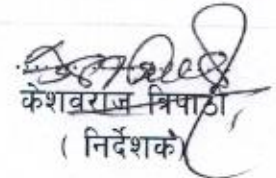 केशवराज त्रिपाठी
( निर्देशक)